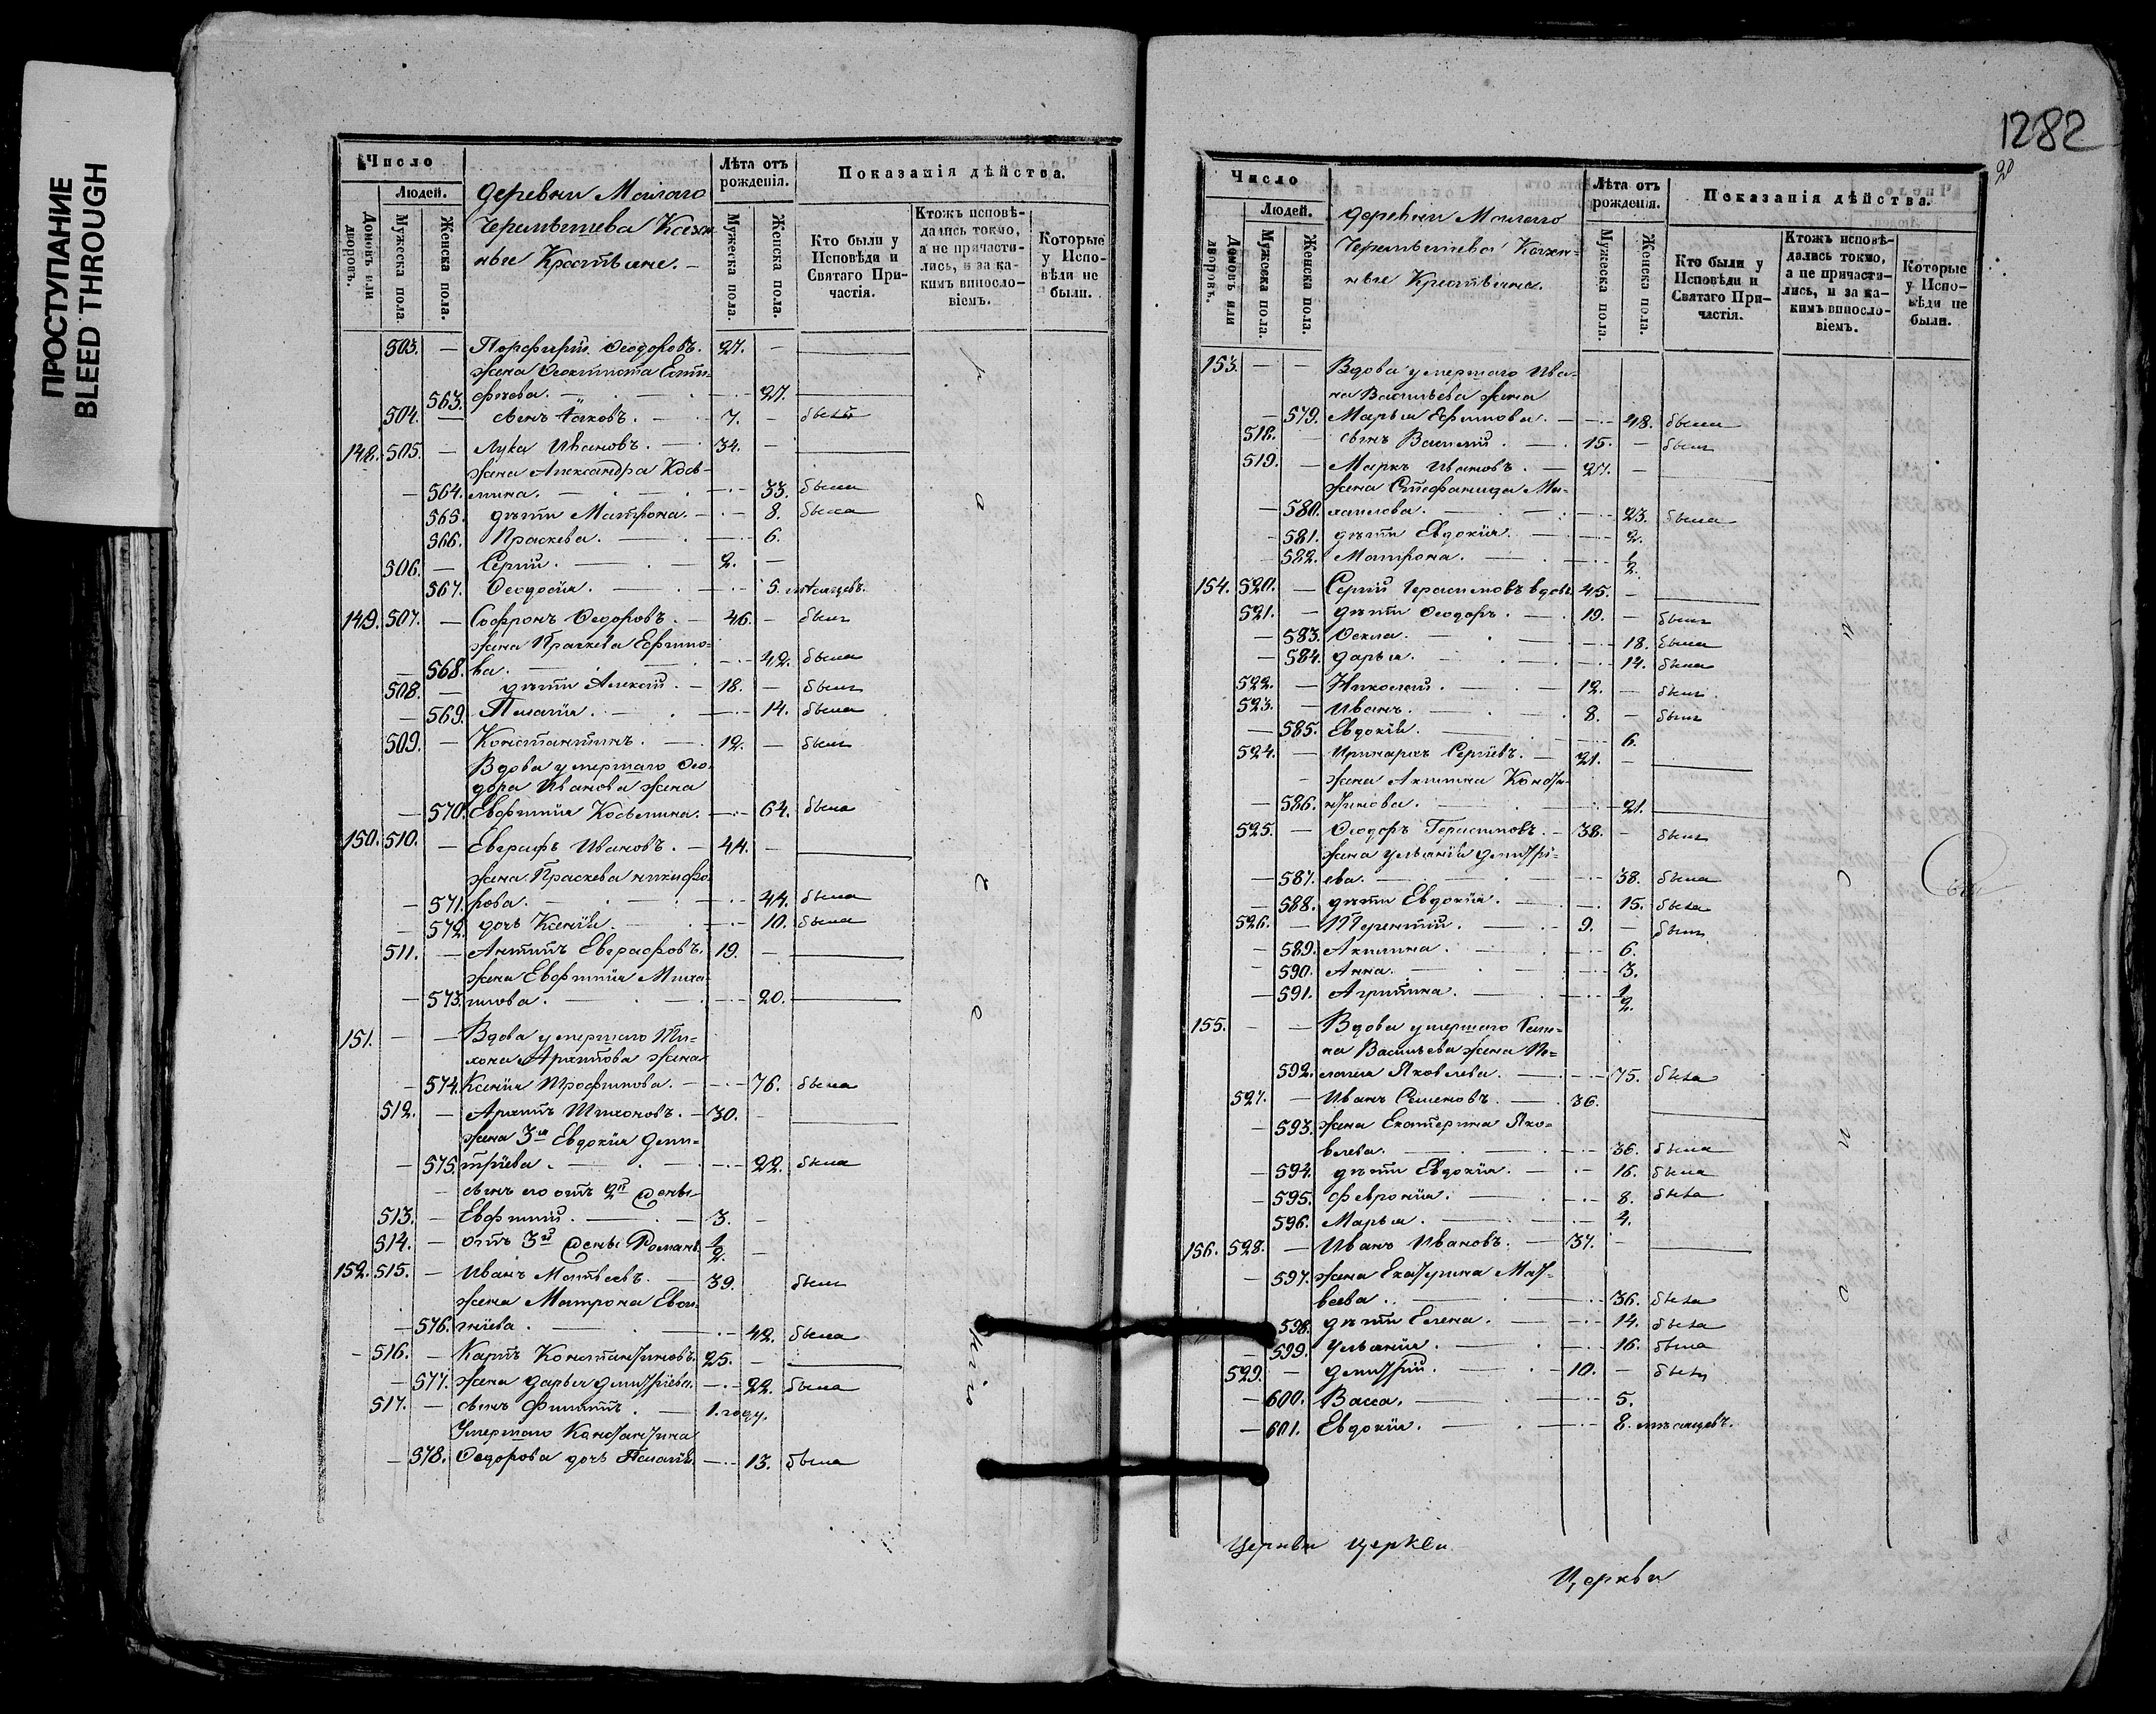 ПРОСТУПАНИЕ
BLEED THROUGH
Число
Людей.
Домовъ или дворовъ.
Мужеска пола.
Женска пола.
деревни Малаго
Казен-
ные Крестьяне.
Лѣта отъ рожденія.
Мужеска пола.
Женска пола.
Показанія дѣйства.
Кто были у Исповѣди и Святаго При-частія.
Ктожъ исповѣ-дались токмо, а не причасти-лись, и за ка-кимъ винословіемъ.
Которые у Испо-вѣди не были.
503. — Порфирій Ѳеодоровъ. 27. —
жена Ѳеоктиста
563. 27.
504. — сынъ Іаковъ. 7. — былъ
148. 505. — Лука Ивановъ. 34. —
жена Александра Косъ-
564. мина. 33. была
565. дѣти Матрона. 8. была
566. Праскева. 6.
506. — Сергій. 2. —
567. Ѳеодосія. 5. мѣсяцевъ.
149. 507. — Софронъ Ѳеодоровъ. 46. — былъ
жена Праскева Ефимо-
568. ва. 42. была
508. — дѣти Алексій. 18. — былъ
— 569. Пелагія. 14. была
509. — Константинъ. 12. — былъ
Вдова умершаго Ѳео-
дора Иванова жена
— 570. Евфимія Косьмина. 64. была
150. 510. — Евграфъ Ивановъ. 44. —
жена Праскева Никифо-
— 571. рова. 44. была
— 572. дочь Ксенія. 10. была
511. — Антипъ Евграфовъ. 19. —
жена Евфимія Миха-
— 573. илова. 20.
151. — — Вдова умершаго Ти-
хона Архипова жена
— 574. Ксенія Трофимова. 76. была
512. — Архипъ Тихоновъ. 30. —
жена 3я Евдокія Дими-
— 575. тріева. 22. была
— сынъ его отъ 2й жены
513. — Евфимій. 3. —
514. — отъ 3й жены Романъ. 1/2. —
152. 515. — Иванъ Матвеевъ. 39. былъ
жена Матрона
— 576. 42. была
— 516. — Карпъ Константиновъ. 25. —
— 577. жена Дарья Димитріева. 22. была
517. — сынъ Филиппъ. 1. году.
Умершаго Константина
— 578. Ѳеодорова дочь Пелагія. 13. была
1282
20
Число
Людей.
Домовъ или дворовъ.
Мужеска пола.
Женска пола.
деревни Малаго
Казен-
ные Крестьяне.
Лѣта отъ рожденія.
Мужеска пола.
Женска пола.
Показанія дѣйства.
Кто были у Исповѣди и Святаго При-частія.
Ктожъ исповѣ-дались токмо, а не причасти-лись, и за ка-кимъ винословіемъ.
Которые у Испо-вѣди не были.
153. — — Вдова умершаго Ива-
на Васильева жена
— 579. Марья Ефимова. 48. была
518. — сынъ Василій. 15. — былъ
519. — Маркъ Ивановъ. 27. —
жена Стефанида Ми-
— 580. хаилова. 23. была
— 581. дѣти Евдокія. 2.
— 582. Матрона. 1/2.
154. 520. — Сергій Герасимовъ вдовъ 45. —
521. — дѣти Ѳеодоръ. 19. — былъ
— 583. Ѳекла. 18. была
— 584. Дарья. 14. была
522. — Николай. 12. — былъ
523. — Иванъ. 8. — былъ
— 585. Евдокія. 6.
524. — Иринархъ Сергіевъ. 21. —
жена Акилина Конста-
— 586. нтинова. 21.
525. — Ѳеодоръ Герасимовъ. 38. — былъ
жена Ульянія Димитрі-
— 587. ева. 38. была
— 588. дѣти Евдокія. 15. была
526. — Терентій. 9. — былъ
— 589. Акилина. 6.
— 590. Анна. 3.
— 591. Агрипина. 1/2.
155. — — Вдова умершаго
на Васильева жена Пе-
592. лагія Яковлева. 75. была
527. — Иванъ Семеновъ. 36.
— 593. жена Екатерина Яко-
влева. 36. была
— 594. дѣти Евдокія. 16. была
— 595. Февронія. 8. была
596. Марья. 4.
156. 528. — Иванъ Ивановъ. 37. —
— 597. жена Екатерина Мат-
веева. 36. была
598. дѣти Елена. 14. была
— 599. Ульянія. 16. была
529. — Димитрій. 10. — былъ
— 600. Васса. 5.
— 601. Евдокія. 8. мѣсяцевъ.
Церкви церкви
Церкви